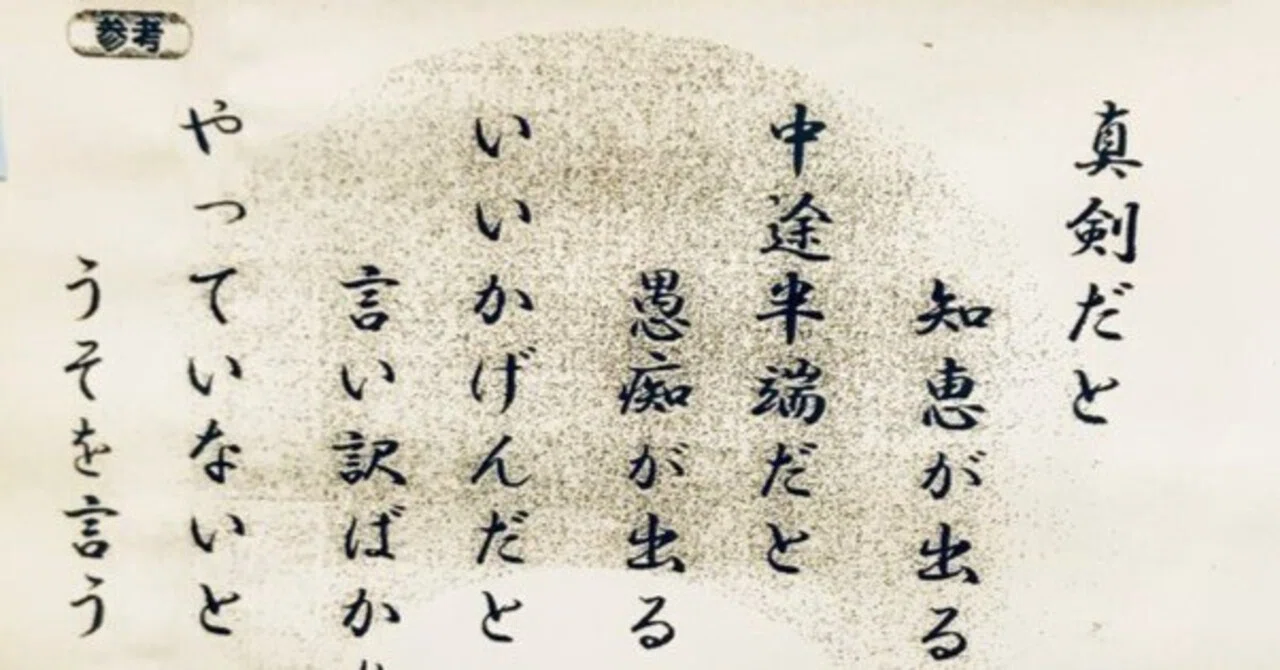 参考
真剣だと
知恵が出る
中途半端だと
愚痴が出る
いいかげんだと
言い訳ばか
やっていないと
うそを言う